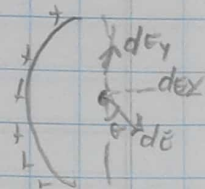 +
dEy
+
+
dEx
+
dE
+
+